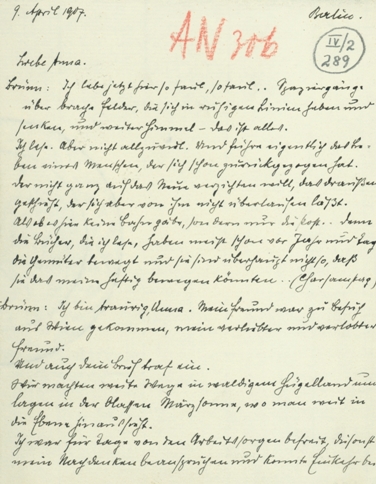 9. April 1907.
Berlin.
AN 306
IV/2
289
Liebe Anna.
Brünn: Ich lebe jetzt hier so faul, so faul.. Spaziergänge
über brache Felder, die sich in ruhigen Linien heben und
senken, und weiter Himmel – das ist alles.
Ich lese. Aber nicht allzuviel. Und führe eigentlich das Le-
ben eines Menschen, der sich schon zurückgezogen hat.
der nicht ganz auf das Neue verzichten will, das draußen
geschieht, der sich aber von ihm nicht überlaufen läßt.
Als ob es hier keine Bahn gäbe, sondern nur die Post. – denn
die Bücher, die ich lese, haben meist schon vor Jahr und Tag
die Gemüter bewegt und sie sind überhaupt nicht so, daß
sie das meine heftig bewegen könnten. (Charsamstag)
Brünn: Ich bin traurig, Anna. Mein Freund war zu Besuch
aus Wien gekommen, mein verliebter und verlobter
Freund.
Und auch dein Brief traf ein.
Wir machten weite Wege in waldigem Hügelland und
lagen in der blassen Märzsonne, wo man weit in
die Ebene hinaussieht.
Ich war für Tage von den Arbeitssorgen befreit, die sonst
mein Nachdenken beanspruchen und konnte Einkehr